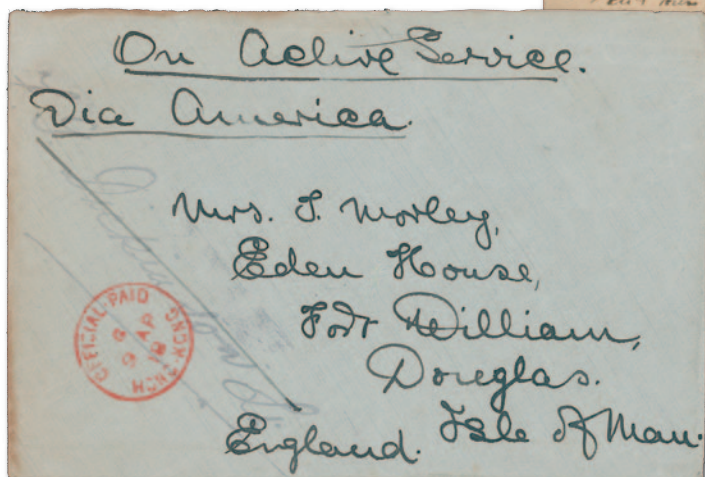 On Active Service.
Via America.
Mrs. J. Morley,
Eden House,
Fort William,
Douglas.
Isle of Man.
England.
OFFICIAL PAID HONG-KONG
G
9 AP
18